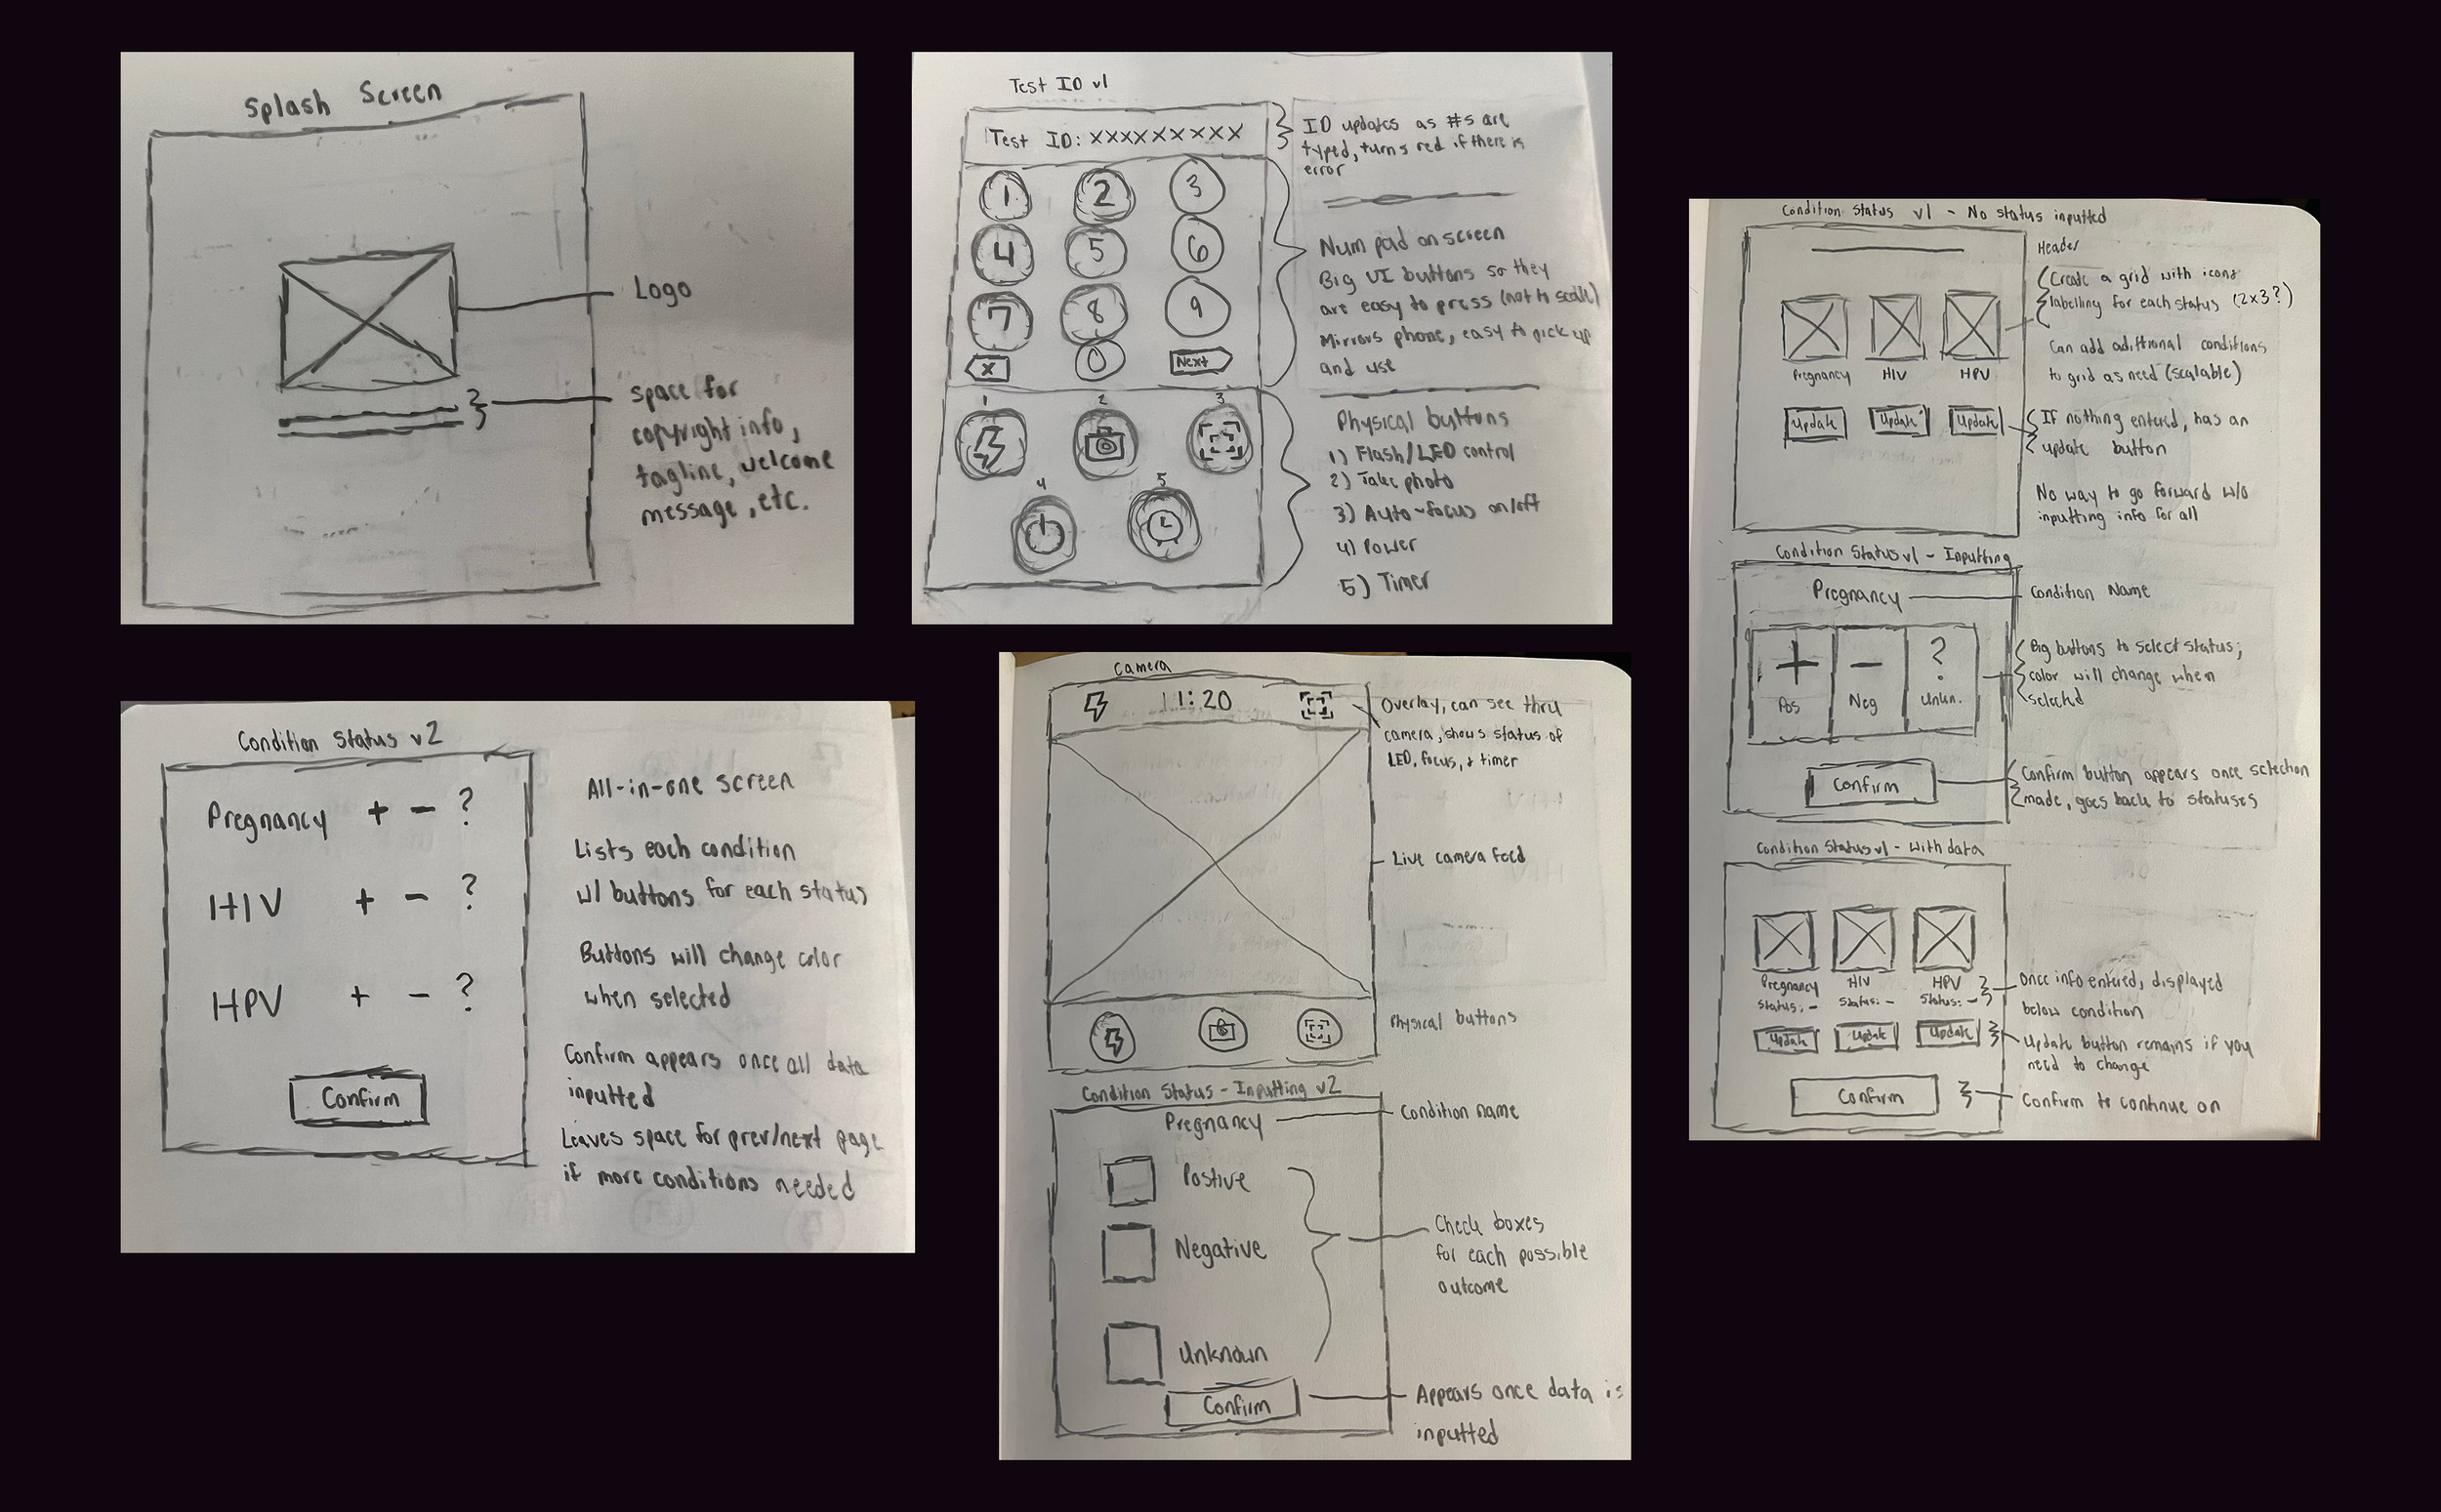 Splash Screen
Logo
space for
copyright info,
tagline, welcome
message, etc.
Test ID v1
Test ID: XXXXXXXXX
1 2 3
4 5 6
7 8 9
X 0 Next
1 2 3
4 5
ID updates as #s are
typed, turns red if there is
error
Num pad on screen
Big UI buttons so they
are easy to press (not to scale)
Mirrors phone, easy to pick up
and use
Physical buttons
1) Flash/LED control
2) Take photo
3) Auto-focus on/off
4) Power
5) Timer
Condition Status v1 - No status inputted
Header
Create a grid with icons
labelling for each status (2x3?)
Can add additional conditions
to grid as need (scalable)
Pregnancy HIV HPV
Update Update Update
If nothing entered, has an
update button
No way to go forward w/o
inputting info for all
Condition Status v1 - Inputting
Pregnancy
Condition Name
+ - ?
Pos Neg Unkn.
Big buttons to select status;
color will change when
selected
Confirm
Confirm button appears once selection
made, goes back to statuses
Condition Status v1 - With data
Pregnancy HIV HPV
Status: - Status: - Status: -
Update Update Update
Once info entered, displayed
below condition
Update button remains if you
need to change
Confirm
Confirm to continue on
Condition Status v2
Pregnancy + - ?
HIV + - ?
HPV + - ?
Confirm
All-in-one screen
Lists each condition
w/ buttons for each status
Buttons will change color
when selected
Confirm appears once all data
inputted
Leaves space for prev/next page
if more conditions needed
Camera
11:20
Overlay, can see thru
camera, shows status of
LED, focus, + timer
Live camera feed
Physical buttons
Condition Status - Inputting v2
Pregnancy
Condition name
Postive
Negative
Unknown
Check boxes
for each possible
outcome
Confirm
Appears once data is
inputted